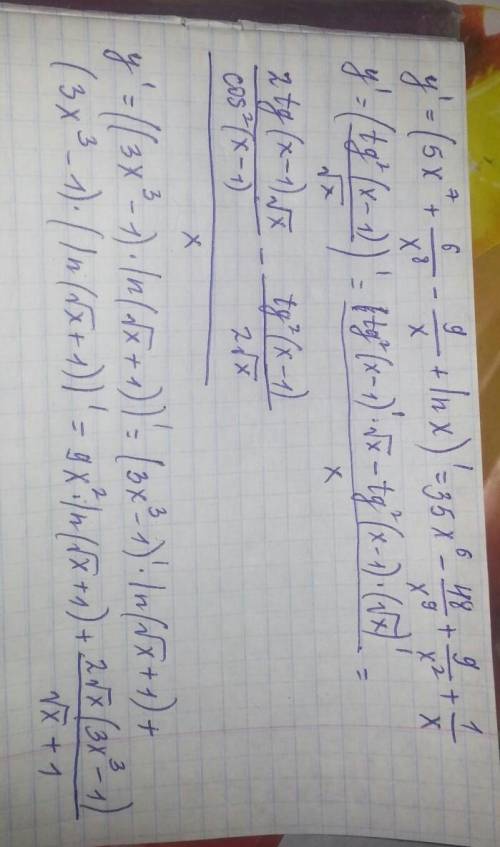 y' = (5x⁷ + 6/x⁸ - 9/x + ln x)' = 35x⁶ - 48/x⁹ + 9/x² + 1/x
y' = (tg²(x-1)/√x)' = ((tg²(x-1))'·√x - tg²(x-1)·(√x)')/x =
(2tg(x-1)√x/cos²(x-1) - tg²(x-1)/2√x)/x
y' = ((3x³-1)·ln(√x+1))' = (3x³-1)'·ln(√x+1) +
(3x³-1)·(ln(√x+1))' = 9x²·ln(√x+1) + 2√x(3x³-1)/√x+1